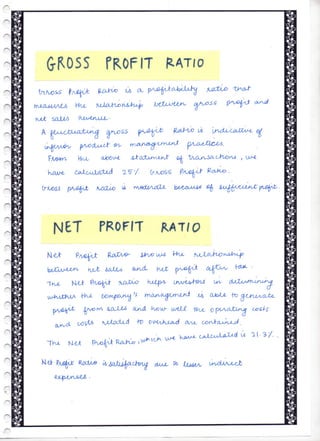 GROSS PROFIT RATIO
Gross Profit Ratio is a profitability ratio that
measures the relationship between gross profit and
net sales revenue.
A fluctuating gross profit Ratio is indicative of
inferior product or management practices
From the above statement of transactions, we
have calculated 25% Gross Profit Ratio.
Gross profit Ratio is moderate because of sufficient profit.
NET PROFIT RATIO
Net Profit Ratio shows the relationship
between net sales and net profit after tax.
The Net Profit ratio helps investors in determining
whether the company's management is able to generate
profit from sales and how well the operating costs
and costs related to overhead are contained.
The Net Profit Ratio, which we have calculated is 21.3%.
Net Profit Ratio is satisfactory due to lesser indirect
expenses.